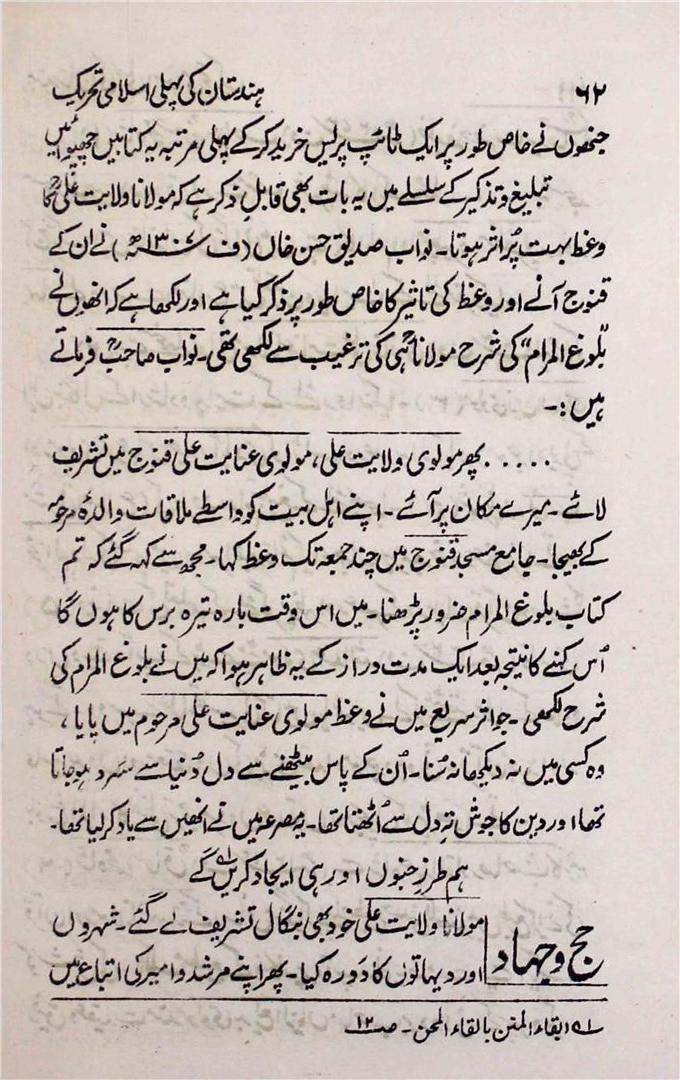 ۶۲ ہندستان کی پہلی اسلامی تحریک
جنھوں نے خاص طور پر ایک ٹائپ پریس خرید کرکے پہلی مرتبہ یہ کتابیں چھپوائیں
تبلیغ و تذکیر کے سلسلے میں یہ بات بھی قابلِ ذکر ہے کہ مولانا ولایت علیؒ کا
وعظ بہت پُر اثر ہوتا۔ نواب صدیق حسن خاں (ف ۱۳۰۷ھ) نے ان کے
قنوج آنے اور وعظ کی تاثیر کا خاص طور پر ذکر کیا ہے اور لکھا ہے کہ انھوں نے
”بلوغ المرام“ کی شرح مولاناؒ ہی کی ترغیب سے لکھی تھی۔ نواب صاحبؒ فرماتے
ہیں :۔
..... پھر مولوی ولایت علی، مولوی عنایت علی قنوج میں تشریف
لائے۔ میرے مکان پر آئے۔ اپنے اہل بیت کو واسطے ملاقات والدہٴ مرحومہ
کے بھیجا۔ جامع مسجد قنوج میں چند جمعہ تک وعظ کہا۔ مجھ سے کہہ گئے کہ تم
کتاب بلوغ المرام ضرور پڑھنا۔ میں اس وقت بارہ تیرہ برس کا ہوں گا
اُس کہنے کا نتیجہ بعد ایک مدت دراز کے یہ ظاہر ہوا کہ میں نے بلوغ المرام کی
شرح لکھی۔ جو اثر سریع میں نے وعظ مولوی عنایت علی مرحوم میں پایا،
وہ کسی میں نہ دیکھا نہ سُنا۔ اُن کے پاس بیٹھنے سے دل دُنیا سے سَرد ہوجاتا
تھا اور دین کا جوش تہِ دل سے اُٹھتا تھا۔ یہ مصرعہ میں نے انھیں سے یاد کرلیا تھا۔
ہم طرزِ جنوں اور ہی ایجاد کریں گے ۱؎
حج و جہاد
مولانا ولایت علی خود بھی بنگال تشریف لے گئے۔ شہروں
اور دیہاتوں کا دَورہ کیا۔ پھر اپنے مرشد و امیر کی اتباع میں
۱؎ ابقاء المنن بالقاء المحن۔ صـ ۱۲